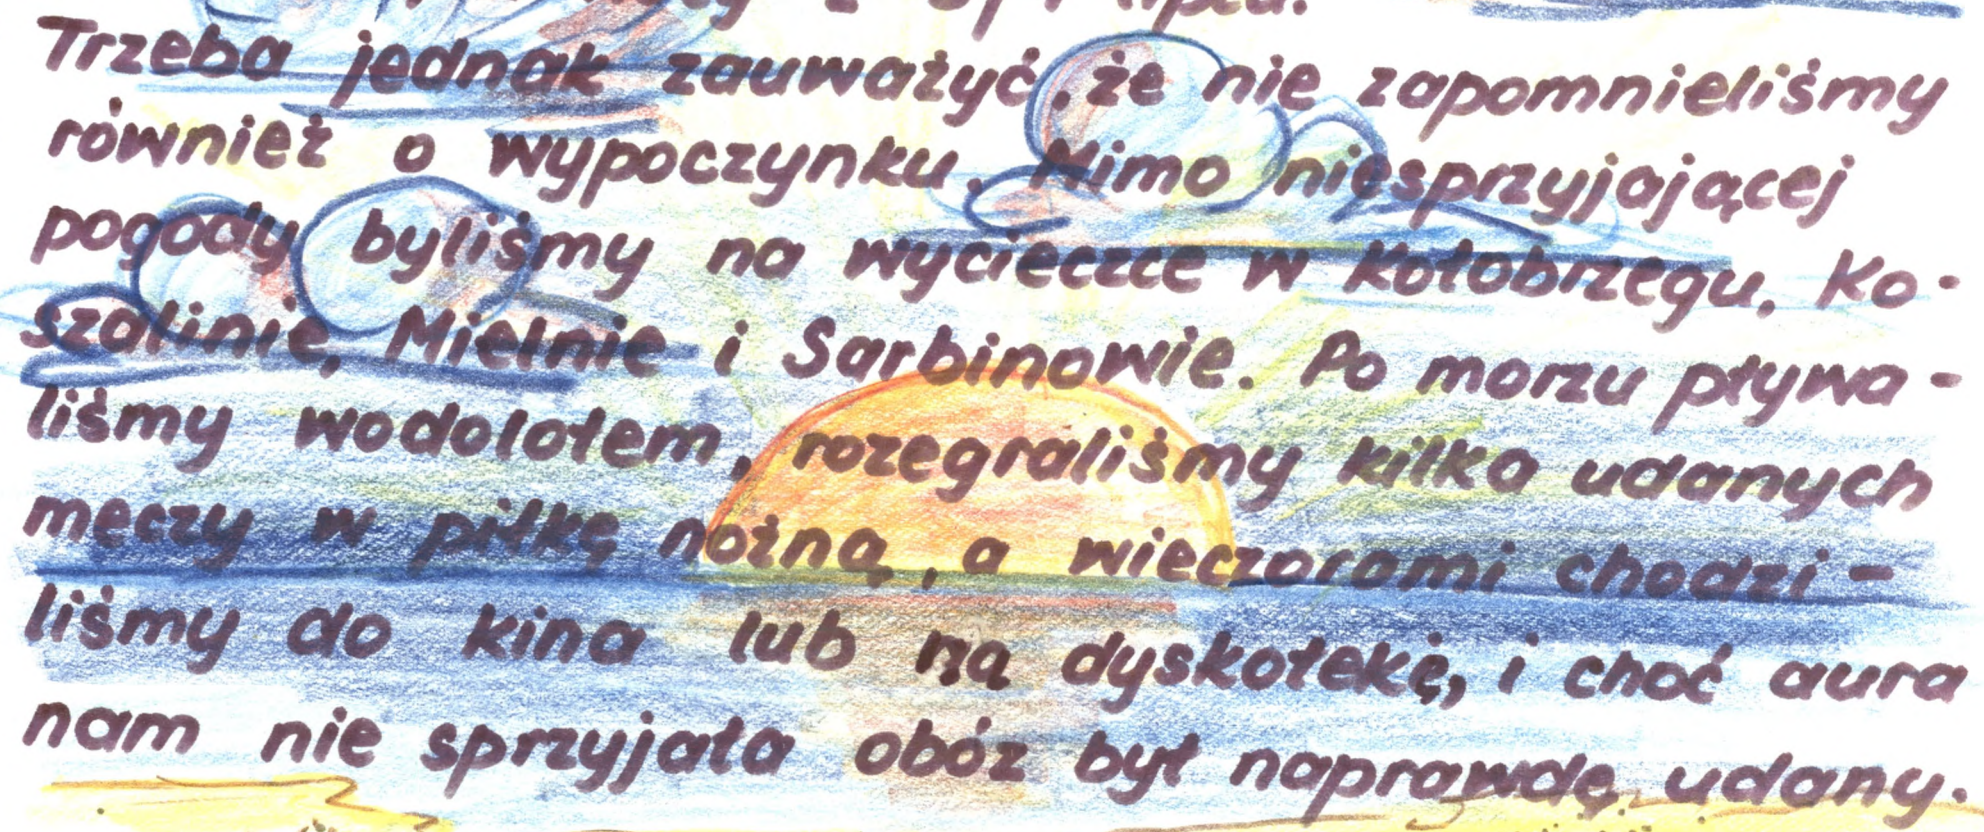 lipca.
Trzeba jednak zauważyć, że nie zapomnieliśmy
również o wypoczynku. Mimo niesprzyjającej
pogody byliśmy na wycieczce w Kołobrzegu, Ko-
szalinie, Mielnie i Sarbinowie. Po morzu pływa-
liśmy wodolotem, rozegraliśmy kilka udanych
meczy w piłkę nożną, a wieczorami chodzi-
liśmy do kina lub na dyskotekę, i choć aura
nam nie sprzyjała obóz był naprawdę udany.